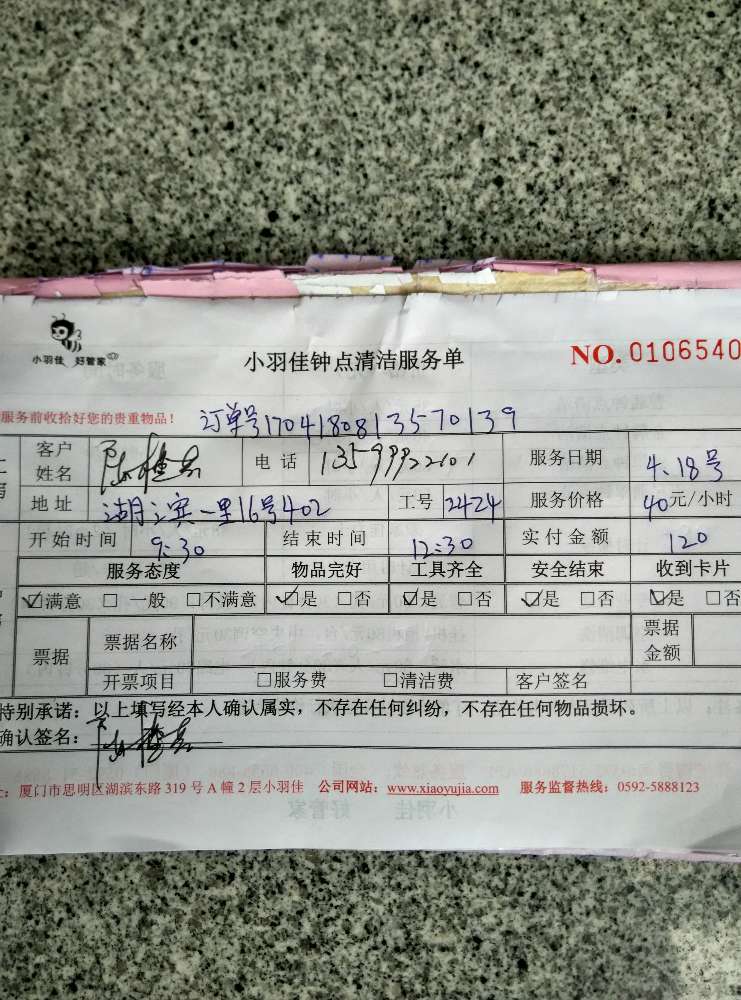 小羽佳 好管家
小羽佳钟点清洁服务单
NO. 0106540
服务前收拾好您的贵重物品！
订单号1704180813570139
客户姓名 电话 13599922101 服务日期 4.18号
地址 湖滨一里16号402 工号 2424 服务价格 40元/小时
开始时间 9:30 结束时间 12:30 实付金额 120
服务态度 物品完好 工具齐全 安全结束 收到卡片
☑满意 □一般 □不满意 ☑是 □否 ☑是 □否 ☑是 □否 ☑是 □否
票据 票据名称 票据金额
开票项目 □服务费 □清洁费 客户签名
特别承诺：以上填写经本人确认属实，不存在任何纠纷，不存在任何物品损坏。
确认签名：
厦门市思明区湖滨东路 319 号 A 幢 2 层小羽佳 公司网站：www.xiaoyujia.com 服务监督热线：0592-5888123